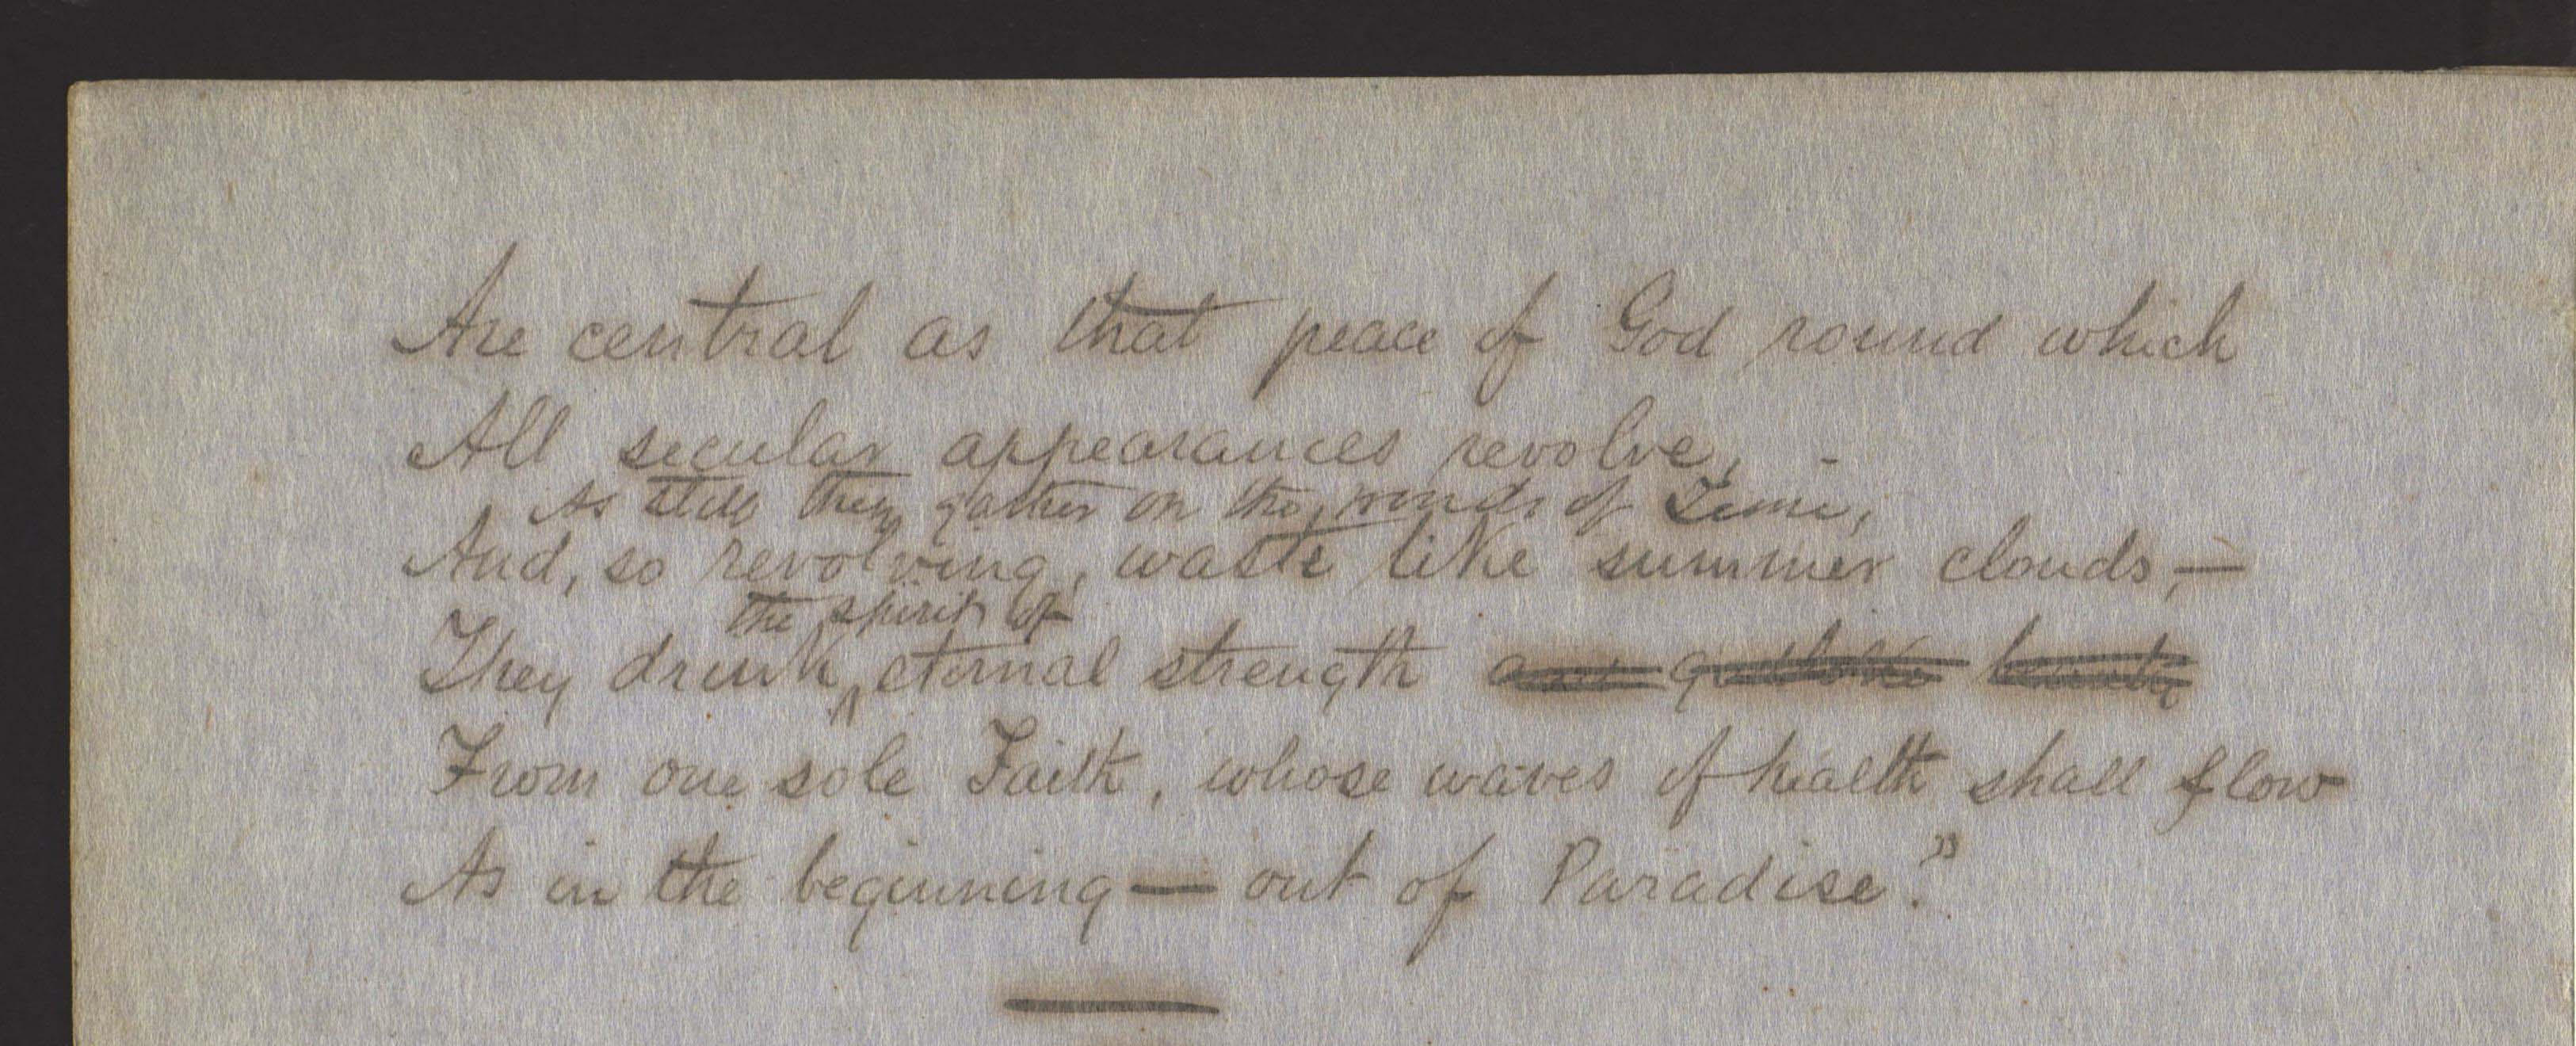 Are central as that peace of God round which
All secular appearances revolve,
As still they gather on the winds of Time,
And, so revolving, waste like summer clouds,—
the spirit of
They drink eternal strength and godlike
From one sole Faith, whose waves of health shall flow
As in the beginning — out of Paradise."